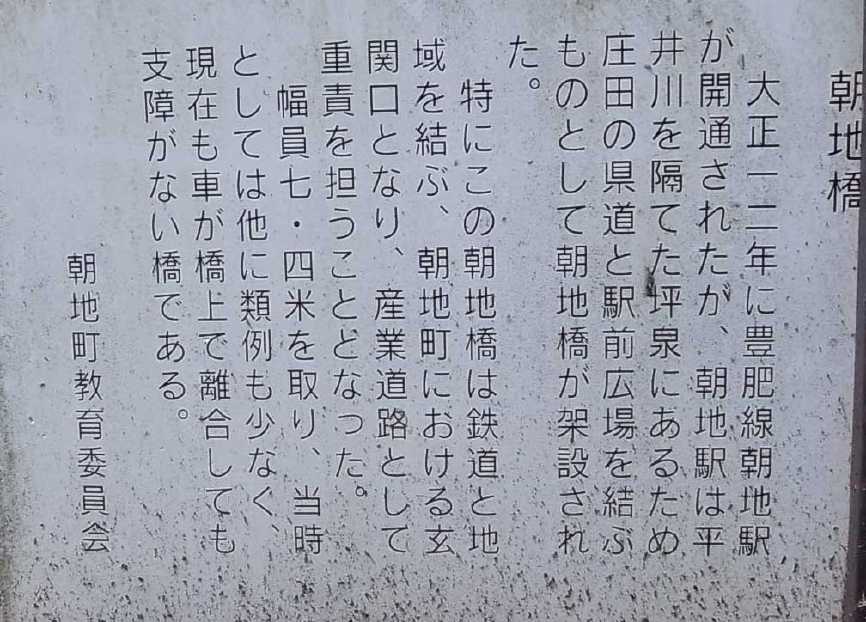 朝地橋
大正一二年に豊肥線朝地駅
が開通されたが、朝地駅は平
井川を隔てた坪泉にあるため
庄田の県道と駅前広場を結ぶ
ものとして朝地橋が架設され
た。
特にこの朝地橋は鉄道と地
域を結ぶ、朝地町における玄
関口となり、産業道路として
重責を担うこととなった。
幅員七・四米を取り、当時
としては他に類例も少なく、
現在も車が橋上で離合しても
支障がない橋である。
朝地町教育委員会